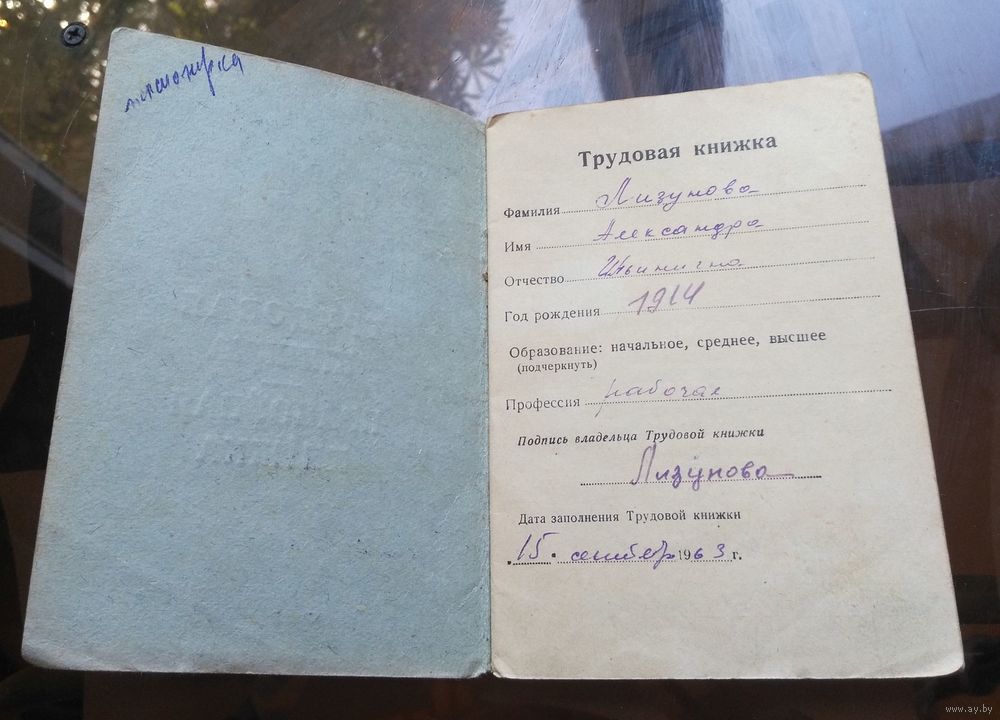 пенсионерка
Трудовая книжка
Фамилия Лизунова
Имя Александра
Отчество Ильинична
Год рождения 1914
Образование: начальное, среднее, высшее
(подчеркнуть)
Профессия рабочая
Подпись владельца Трудовой книжки
Лизунова
Дата заполнения Трудовой книжки
15. сентябр 1963 г.
www.ay.by